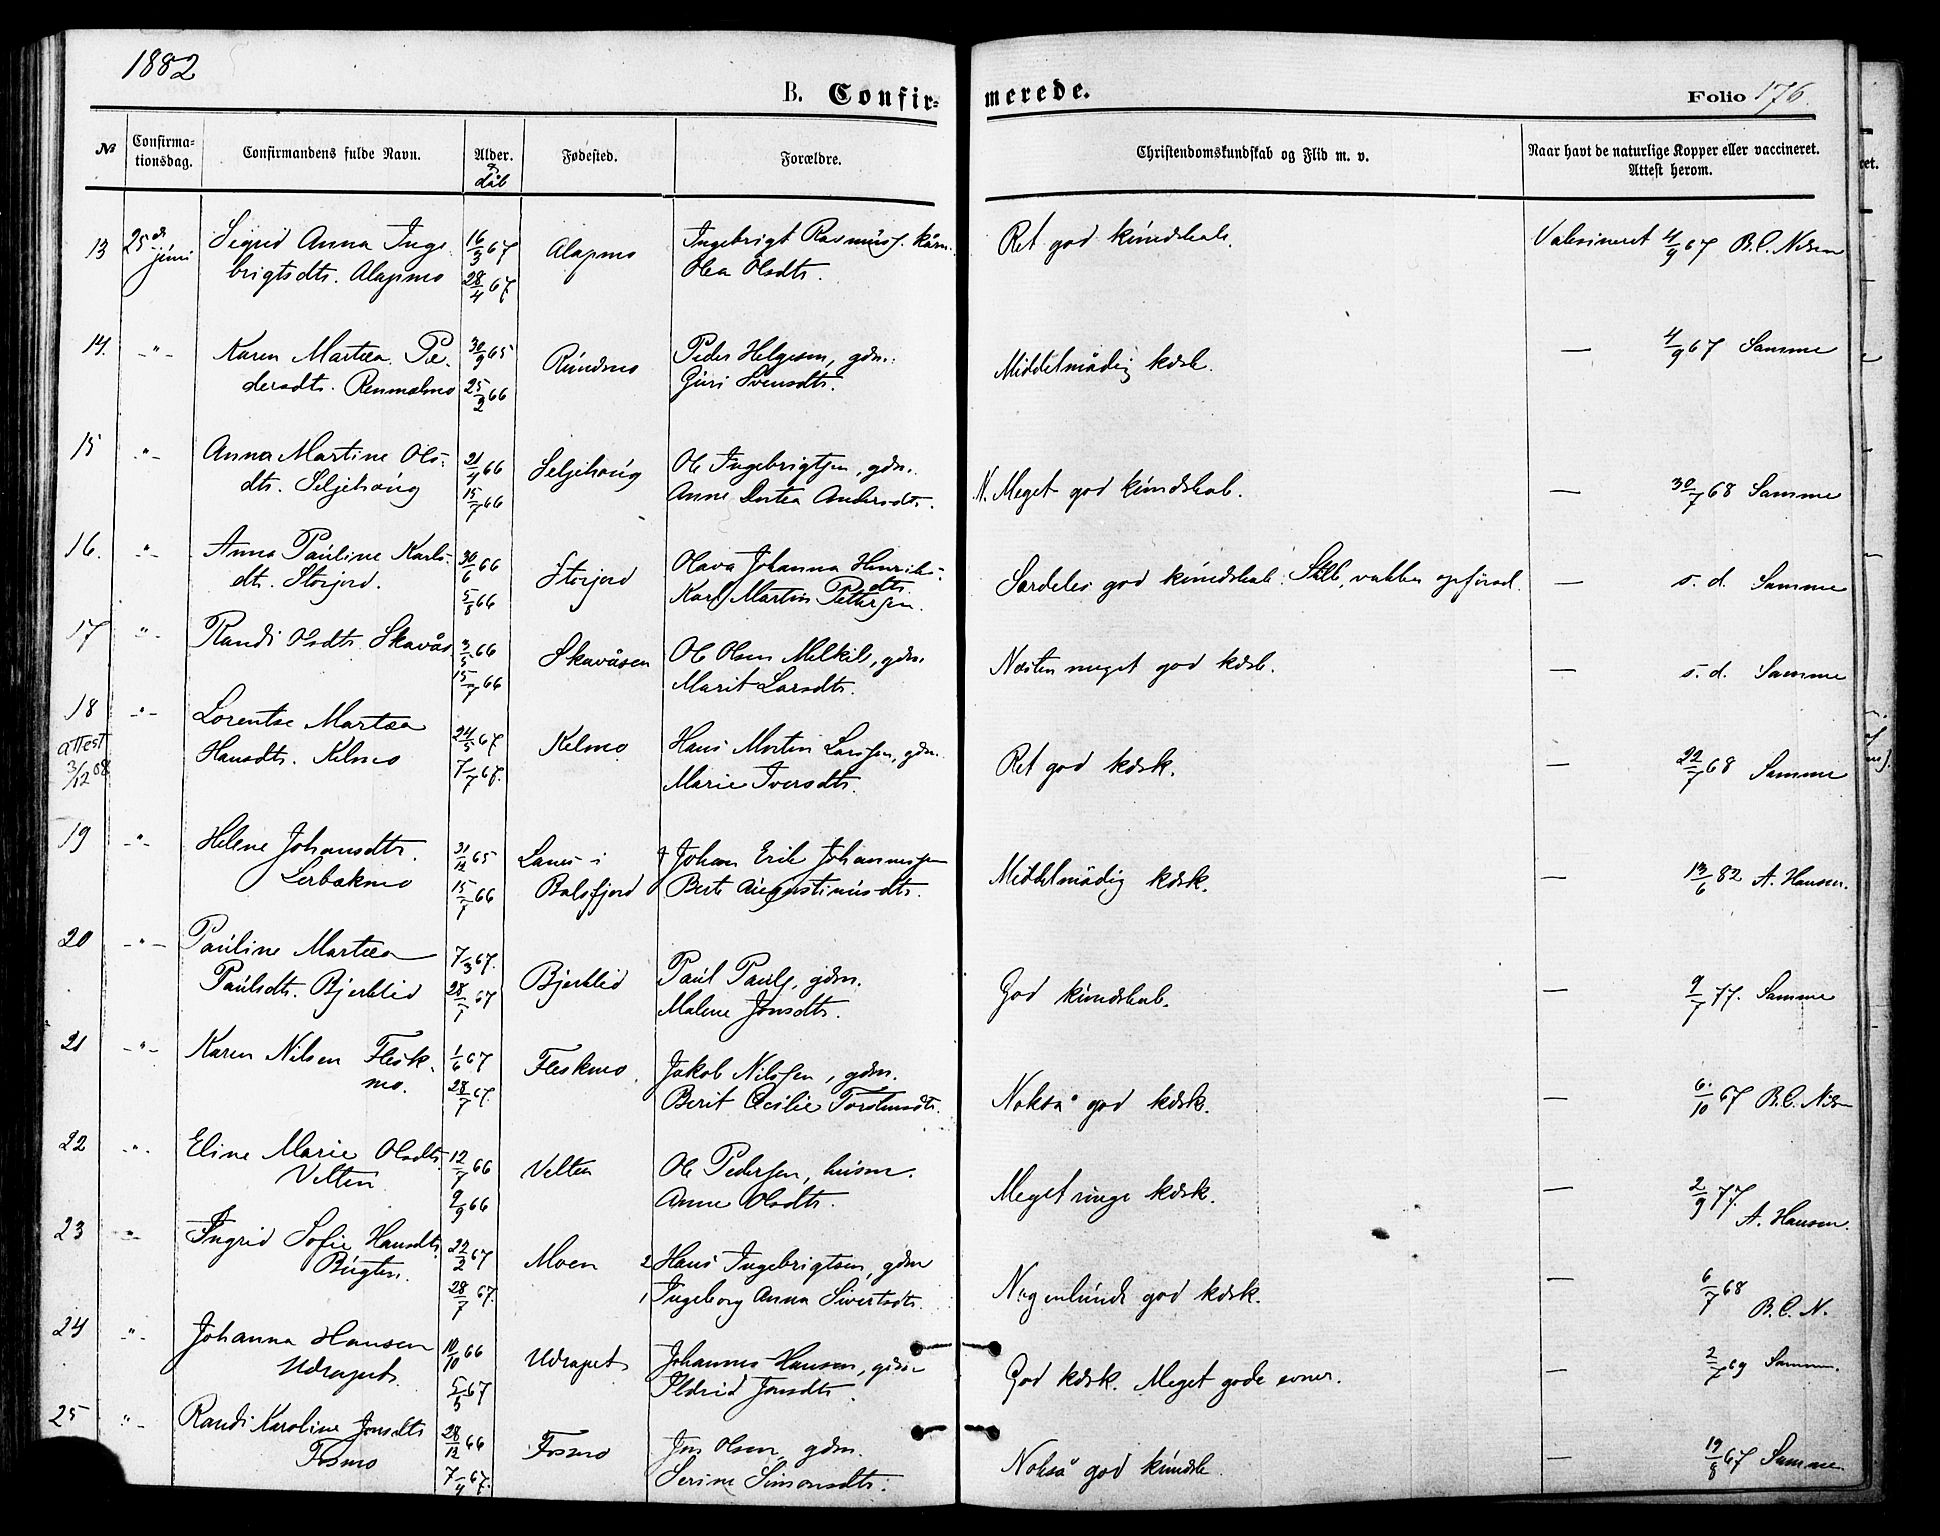 1882
B. Confirmerede.
Folio 176.
№
Confirmationsdag.
Confirmandens fulde Navn.
Alder. & dåb
Fødested.
Forældre.
Christendomskundskab og Flid m. v.
Naar havt de naturlige Kopper eller vaccineret. Attest herom.
13 25de juni Sigrid Anna Inge- 16/3 67 Alapmo Ingebrigt Rasmuss. kårm. Ret god kundskab. Vaksineret 4/9 67 B.C. Nilsen
brigtsdtr. Alapmo 28/4 67. Olea Olsdtr.
14. -"- Karen Martea Pe- 30/9 65 Rundmo Peder Helgesen, gdm. Middelmådig kdsk. — 4/9 67 Samme
dersdtr. Renmælmo 25/2 66 Guri Svensdtr.
15 -"- Anna Martine Ols- 21/4 66 Seljehaug Ole Ingebrigtsen, gdm. N. Meget god kundskab. — 30/7 68 Samme
dtr. Seljehaug 15/7 66 Anne Dortea Andersdtr.
16. -"- Anna Pauline Karls- 30/6 66 Storjord Olava Johanna Henriks- Særdeles god kundskab. Still, vakker opførsel. — s. d. Samme
dtr. Storjord. 5/8 66 dtr. Karl Martin Pettersen.
17 -"- Randi Olsdtr. Skavås 3/5 66 Skavåsen Ole Olsen Melkil, gdm. Næsten meget god kdsk. — s. d. Samme
15/7 66 Marit Larsdtr.
18 -"- Lorentse Martea 24/5 67 Kelmo Hans Martin Larssen, gdm. Ret god kdsk. — 22/7 68 Samme
attest 3/12 08 Hansdtr. Kelmo 7/7 67. Marie Iversdtr.
19 -"- Helene Johansdtr. 31/12 65 Lanes i † Johan Erik Johannessen Middelmådig kdsk. — 13/6 82 A. Hansen.
Lerbækmo 15/7 66 Balsfjord Berit Augustinusdtr.
20 -"- Pauline Martea 7/3 67. Bjerklid Paul Pauls., gdm. God kundskab. — 9/7 77. Samme
Paulsdtr. Bjerklid 28/7 67 Malene Jonsdtr.
21 -"- Karen Nilsen Flesk- 1/6 67 Fleskmo. Jakob Nilssen, gdm. Nokså god kdsk. — 6/10 67 B.C. Nilsen
mo. 28/7 67. Berit Cecilie Torstensdtr.
22 -"- Eline Marie Olsdtr. 12/7 66 Velten Ole Pedersen, husm. Meget ringe kdsk. — 2/9 77.
Velten 9/9 66 Anne Olsdtr. A. Hansen.
23 -"- Ingrid Sofie Hansdtr. 22/2 67 Moen 2 Hans Ingebrigtsen, gdm Nogenlunde god kdsk. — 6/7 68
Bugten. 28/7 67. 1 Ingeborg Anna Sivertsdtr. B.C. N.
24 -"- Johanna Hansen 10/10 66 Udrapet Johannes Hansen, gdm God kdsk. Meget gode evner. — 2/7 69 Samme.
Udrapet. 5/5 67 Ildrid Jonsdtr.
25 -"- Randi Karoline Jonsdtr. 28/12 66 Fosmo Jon Olsen, gdm. Nokså god kundsk. — 19/8 67 Samme
Fosmo 7/4 67. Serine Simonsdtr.